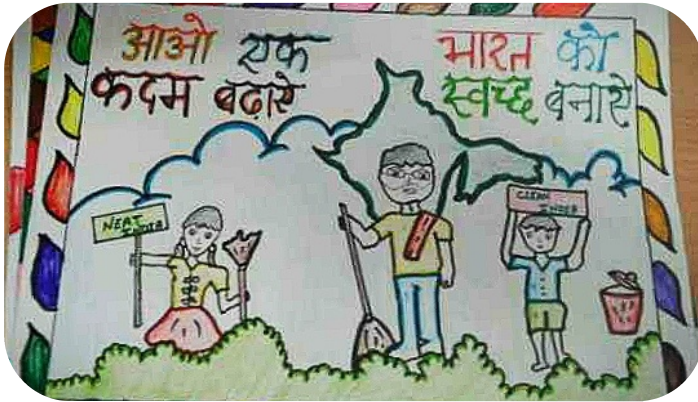 आओ एक
कदम बढ़ाये
भारत को
स्वच्छ बनाये
NEAT
INDIA
CLEAN
INDIA